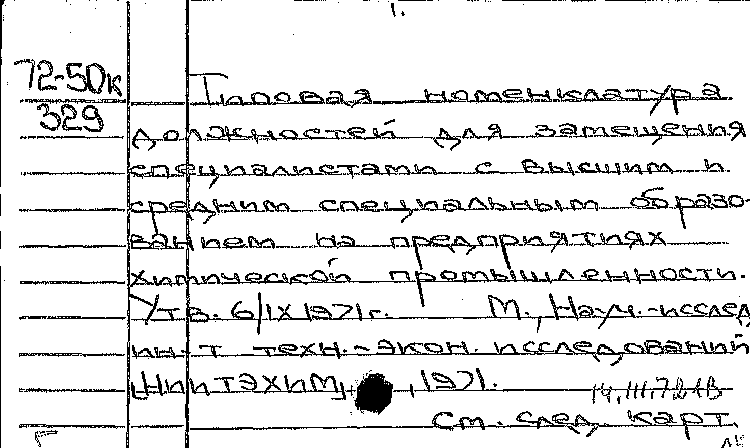 1.
72-50к
329
Типовая номенклатура
должностей для замещения
специалистами с высшим и
средним специальным образо-
ванием на предприятиях
химической промышленности.
Утв. 6/IX 1971г. М., Науч.-исслед
ин-т техн.-экон. исследований
"НИИТЭХИМ", 1971.
См. след. карт.